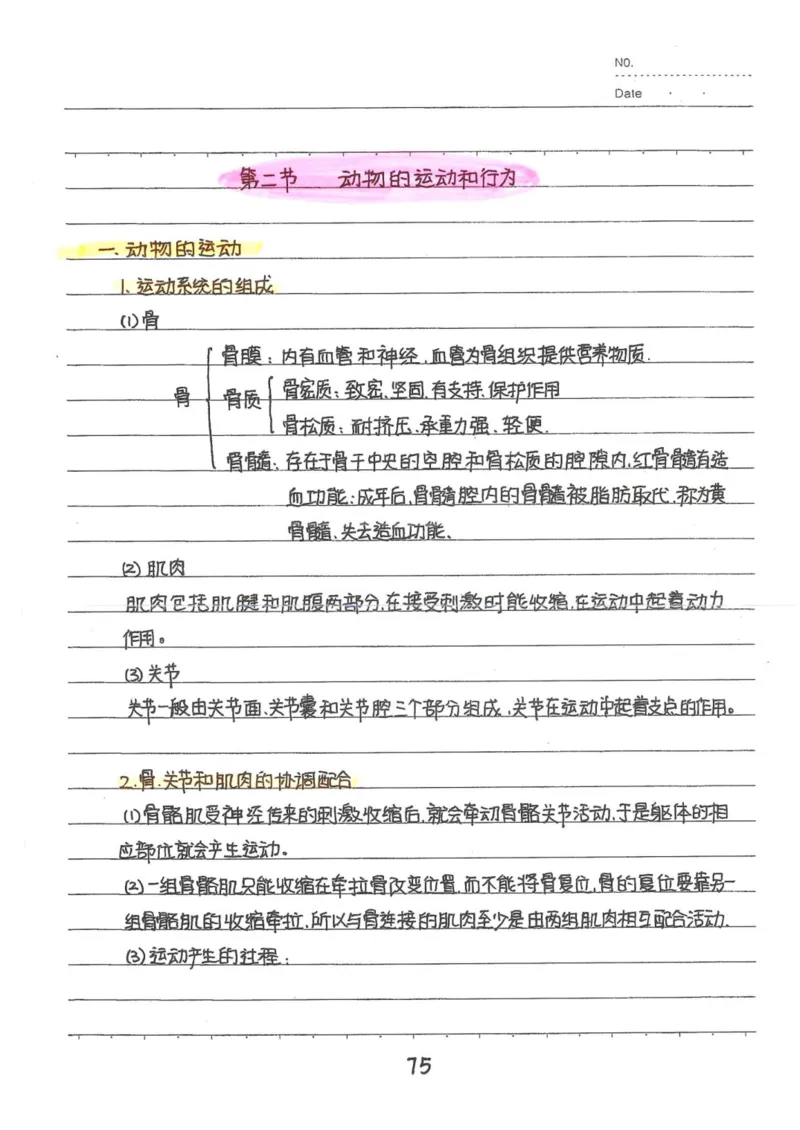 NO.
Date
第二节 动物的运动和行为
一、动物的运动
1、运动系统的组成
(1)骨
骨膜:内有血管和神经,血管为骨组织提供营养物质.
骨 骨质 骨密质:致密、坚固,有支持、保护作用
骨松质:耐挤压、承重力强、轻便.
骨骨髓:存在于骨干中央的空腔和骨松质的腔隙内,红骨骨髓有造
血功能;成年后,骨骨髓腔内的骨骨髓被脂肪取代,称为黄
骨骨髓,失去造血功能、
(2)肌肉
肌肉包括肌腱和肌腹两部分,在接受刺激时能收缩,在运动中起着动力
作用。
(3)关节
关节一般由关节面、关节囊和关节腔三个部分组成,关节在运动中起着支点的作用。
2.骨.关节和肌肉的协调配合
(1)骨骼肌受神经传来的刺激收缩后,就会牵动骨骼关节活动,于是躯体的相
应部位就会产生运动。
(2)一组骨骼肌只能收缩在牵拉骨改变位置,而不能将骨复位,骨的复位要靠另一
组骨骼肌的收缩牵拉,所以与骨连接的肌肉至少是由两组肌肉相互配合活动.
(3)运动产生的过程:
75